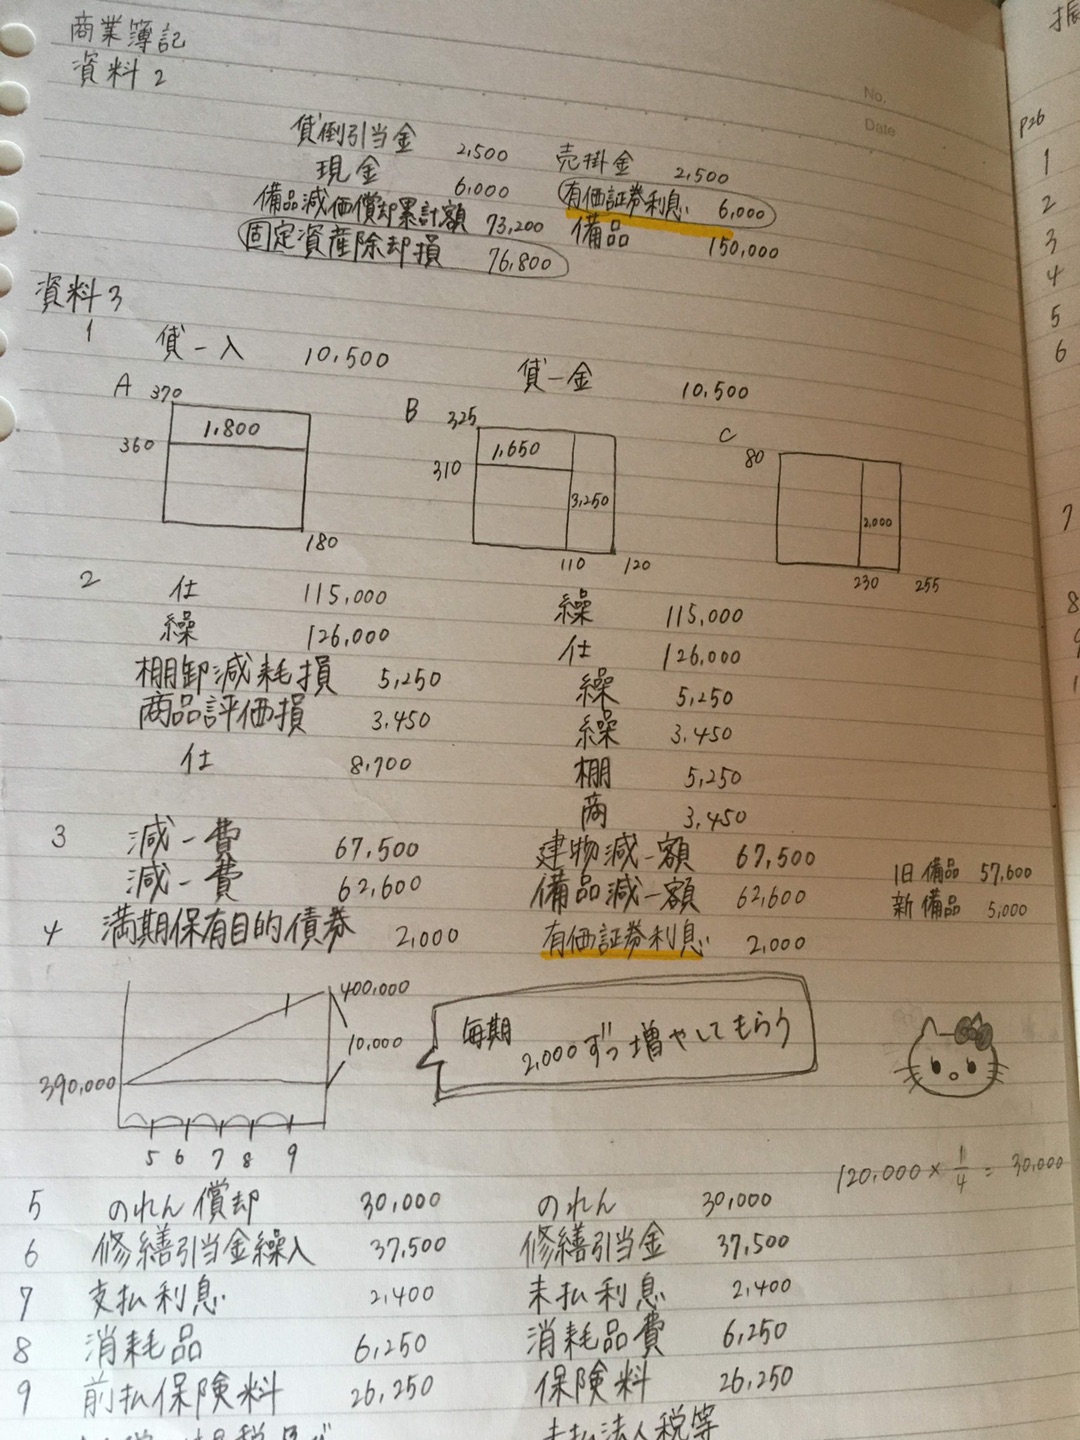 商業簿記
資料2
No.
Date
貸倒引当金 2,500 売掛金 2,500
現金 6,000 有価証券利息 6,000
備品減価償却累計額 73,200 備品 150,000
固定資産除却損 76,800
資料3
1 貸-入 10,500 貸-金 10,500
A 370 1,800 360 180
B 325 1,650 310 3,250 110 120
C 80 2,000 230 255
2 仕 115,000 繰 115,000
繰 126,000 仕 126,000
棚卸減耗損 5,250 繰 5,250
商品評価損 3,450 繰 3,450
仕 8,700 棚 5,250
商 3,450
3 減-費 67,500 建物減-額 67,500
減-費 62,600 備品減-額 62,600
旧備品 57,600
新備品 5,000
4 満期保有目的債券 2,000 有価証券利息 2,000
400,000
10,000
390,000
5 6 7 8 9
毎期
2,000ずつ増やしてもらう
120,000×1/4=30,000
5 のれん償却 30,000 のれん 30,000
6 修繕引当金繰入 37,500 修繕引当金 37,500
7 支払利息 2,400 未払利息 2,400
8 消耗品 6,250 消耗品費 6,250
9 前払保険料 26,250 保険料 26,250
未払法人税等
P26
1
2
3
4
5
6
7
8